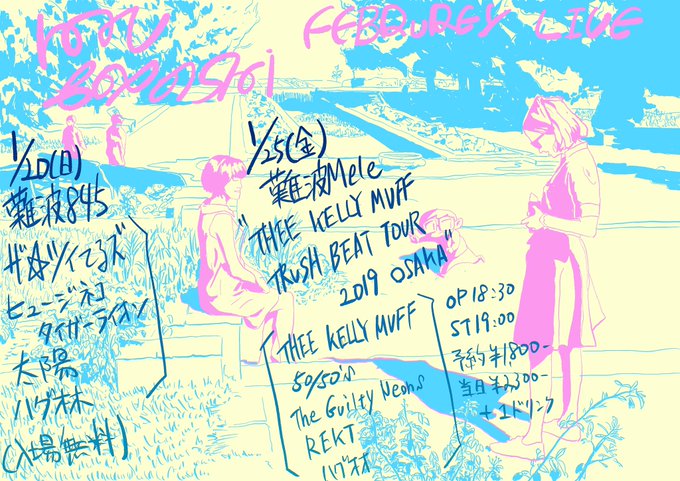 FEBRUREY LIVE
1/20(日)
難波845
ザ☆ツイてるズ
ヒュージネコ
タイガーライオン
太陽
ハグ林
(入場無料)
1/25(金)
難波Mele
"THEE KELLY MUFF
TRUSH BEAT TOUR
2019 OSAKA"
THEE KELLY MUFF
50/50's
The Guilty Neons
REKT
ハグ林
OP 18:30
ST 19:00
予約¥1800-
当日¥2300-
+1ドリンク